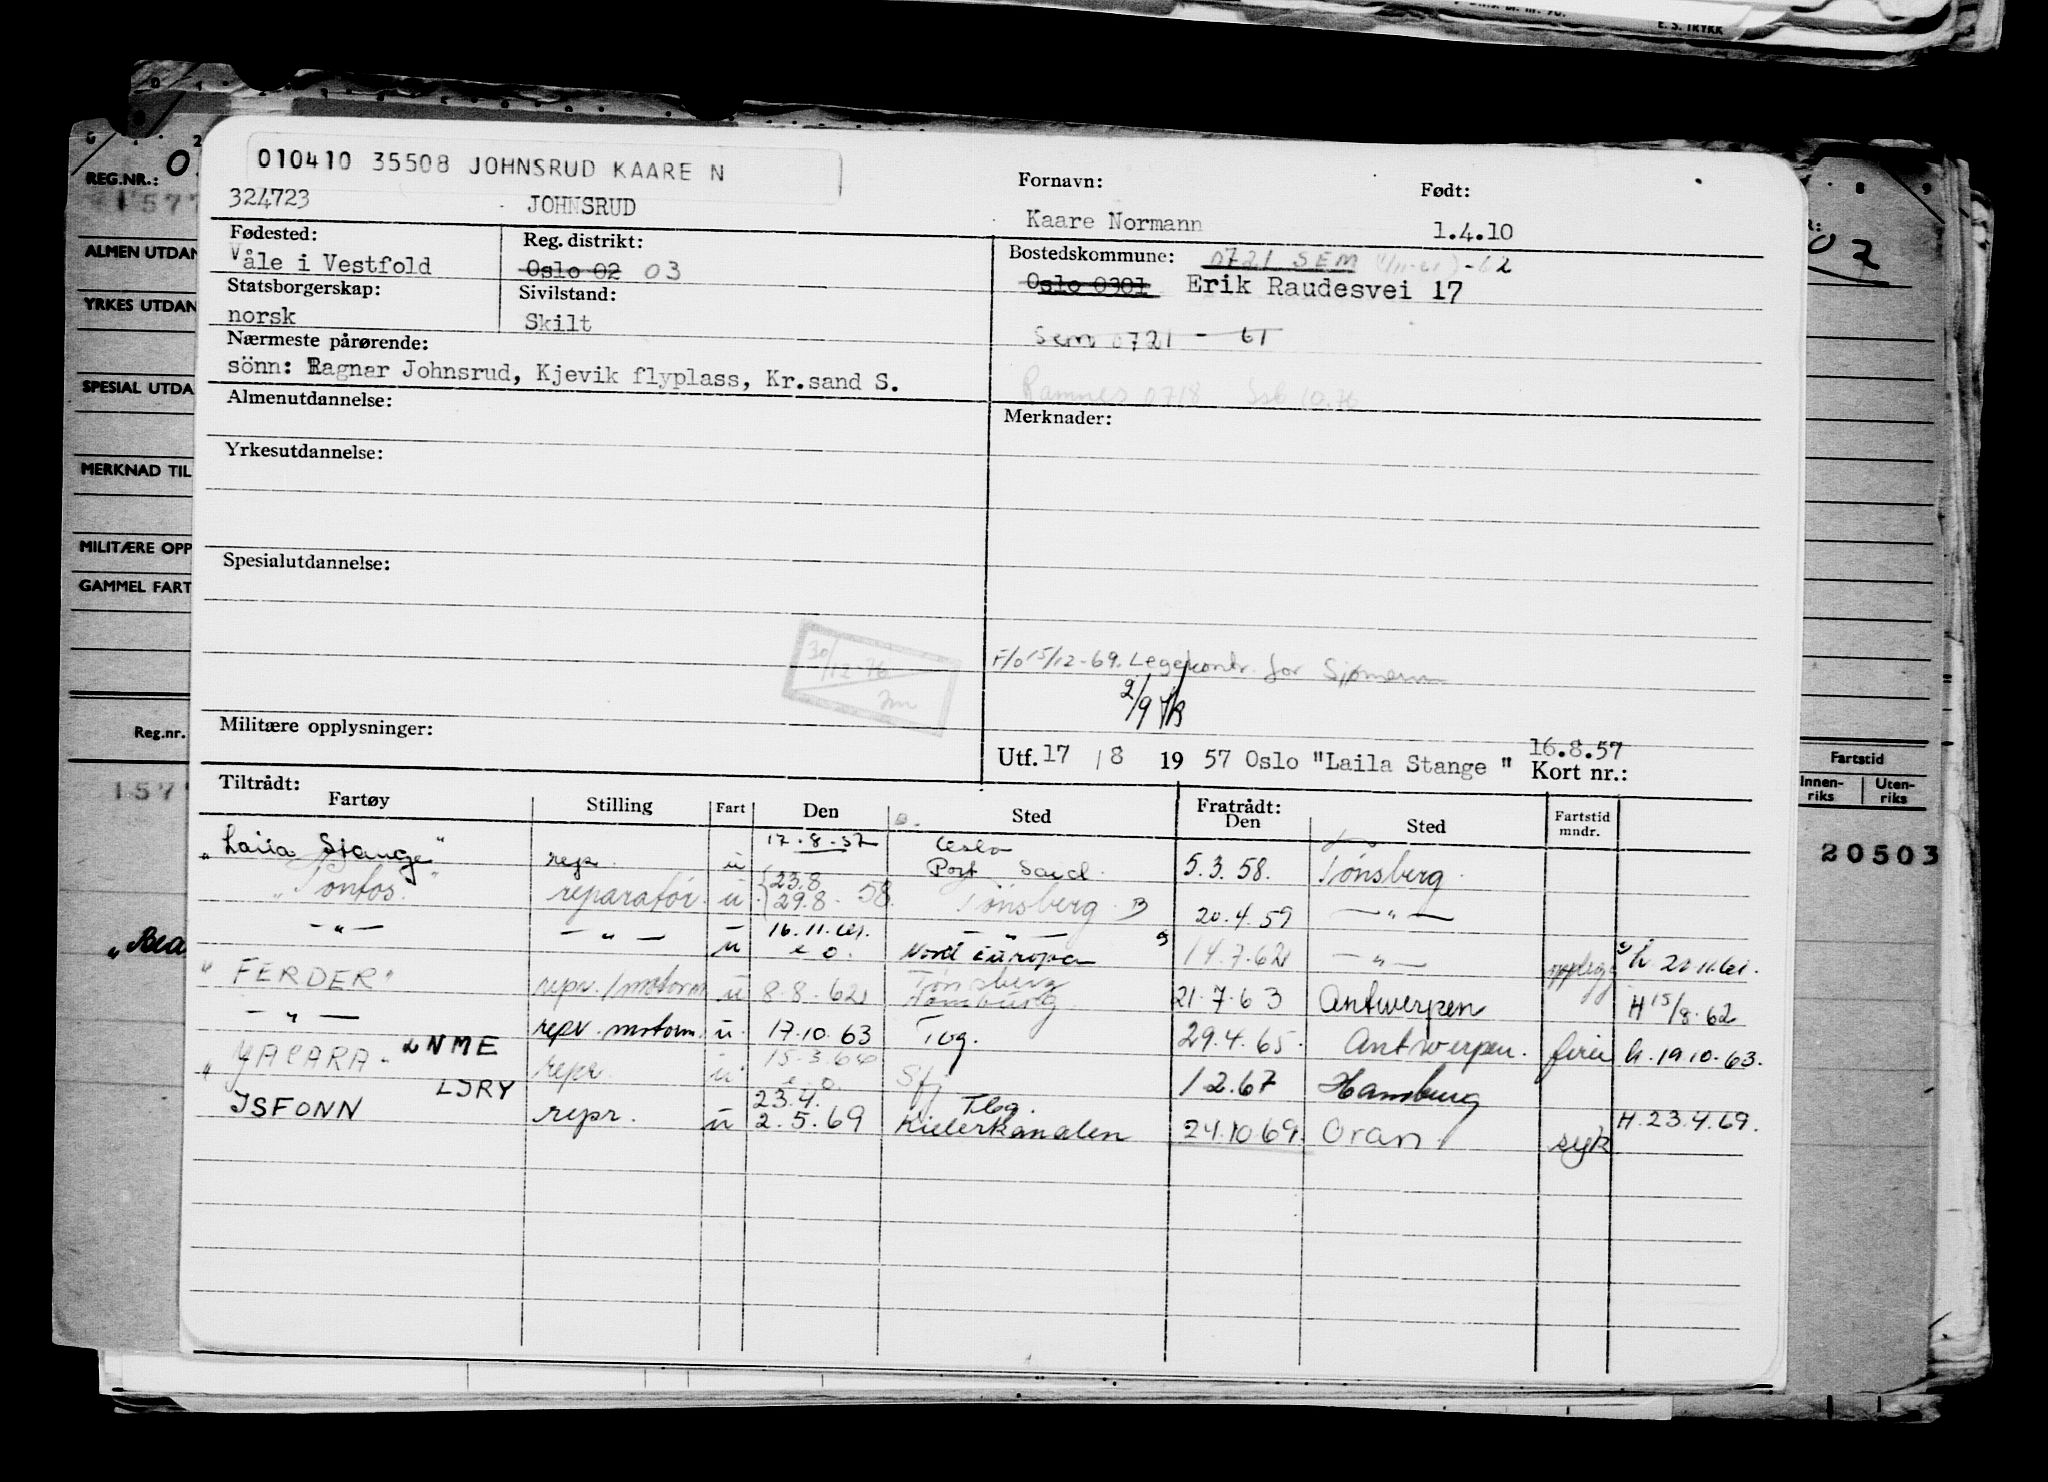 E. S. TRYKK
REG.NR.:
ALMEN UTDAN
YRKES UTDAN
SPESIAL UTDA
MERKNAD TIL
MILITÆRE OPP
GAMMEL FART
Reg.nr.
1577
010410 35508 JOHNSRUD KAARE N
324723 JOHNSRUD
Fornavn: Født:
Kaare Normann 1.4.10
Fødested: Reg. distrikt: Bostedskommune: 0721 SEM -62
Våle i Vestfold Oslo 02 03 Oslo 0301 Erik Raudesvei 17
Statsborgerskap: Sivilstand:
norsk Skilt Sem 0721 - 61
Nærmeste pårørende:
sönn: Ragnar Johnsrud, Kjevik flyplass, Kr.sand S.
Ramnes 0718 Ssb 10.76
Almenutdannelse: Merknader:
Yrkesutdannelse:
Spesialutdannelse:
30/12-76
F/o 15/12-69. Legekontr. for Sjømenn
2/9
Militære opplysninger:
Utf. 17 / 8 19 57 Oslo "Laila Stange" 16.8.57
Kort nr.:
Tiltrådt: Fratrådt:
Fartøy Stilling Fart Den Sted Den Sted Fartstid mndr.
"Laila Stange" repr. u 17.8.57 Oslo 5.3.58. Tønsberg
Port Said
"Pontos." reparatør u 23.8 29.8 58 Tønsberg B 20.4.59 — " —
— " — — " — u 16.11.61. e o. Nord Europa 14.7.62 — " — opplegg h. 20.11.61.
"FERDER" repr./motorm u 8.8.62 Tønsberg 21.7.63 Antwerpen H 15/8.62
— " — repr. motorm. u 17.10.63 Tbg. 29.4.65. Antwerpen. ferie h. 19.10.63.
"YACARA - LNME repr u 15.3.66 e o Sfj 1.2.67 Hamburg
ISFONN LJRY repr. u 23.4. 2.5.69 Tbg. Kielerkanalen 24.10.69. Oran syk H. 23.4.69.
Fartstid
Innen-riks Uten-riks
20503